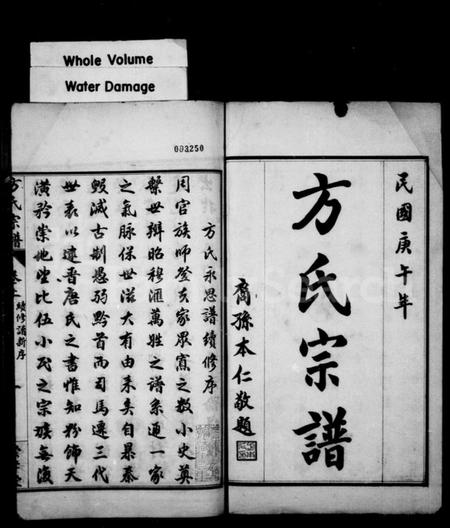 Whole Volume
Water Damage
003250
民國庚午年
方氏宗譜
裔孫本仁敬題
方氏永思譜續修序
周官族師登夫家眾寡之數小史奠
繫世辨昭穆滙萬姓之譜系通一家
之氣脉保世滋大有由來矣自暴秦
蝦滅古制愚弱黔首而司馬遷三代
世表以逮晉唐氏之書惟知粉飾天
潢矜崇地望比伍小民之宗族每復
方氏宗譜
卷一
續修譜新序